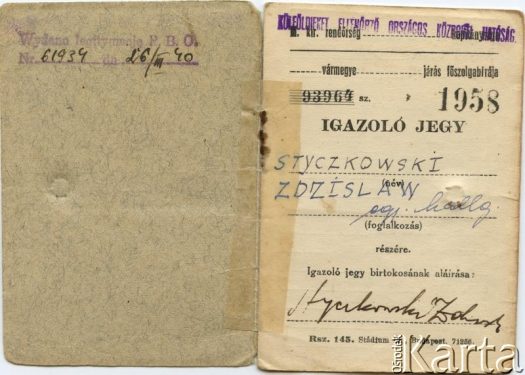 Wydano legitymację P. B. O.
Nr. 61934 da 26/III 40
KÜLFÖLDIEKET ELLENŐRZŐ ORSZÁGOS KÖZPONTI HATÓSÁG.
M. kir. rendőrség kapitánysága
vármegye járás főszolgabírája
93964 sz. 1958
IGAZOLÓ JEGY
STYCZKOWSKI
ZDZISLAW
(név)
egy. hallg.
(foglalkozás)
részére.
Igazoló jegy birtokosának aláírása:
Styczkowski
Rsz. 145. Stádium Budapest. 71256.
ośrodek
Karta